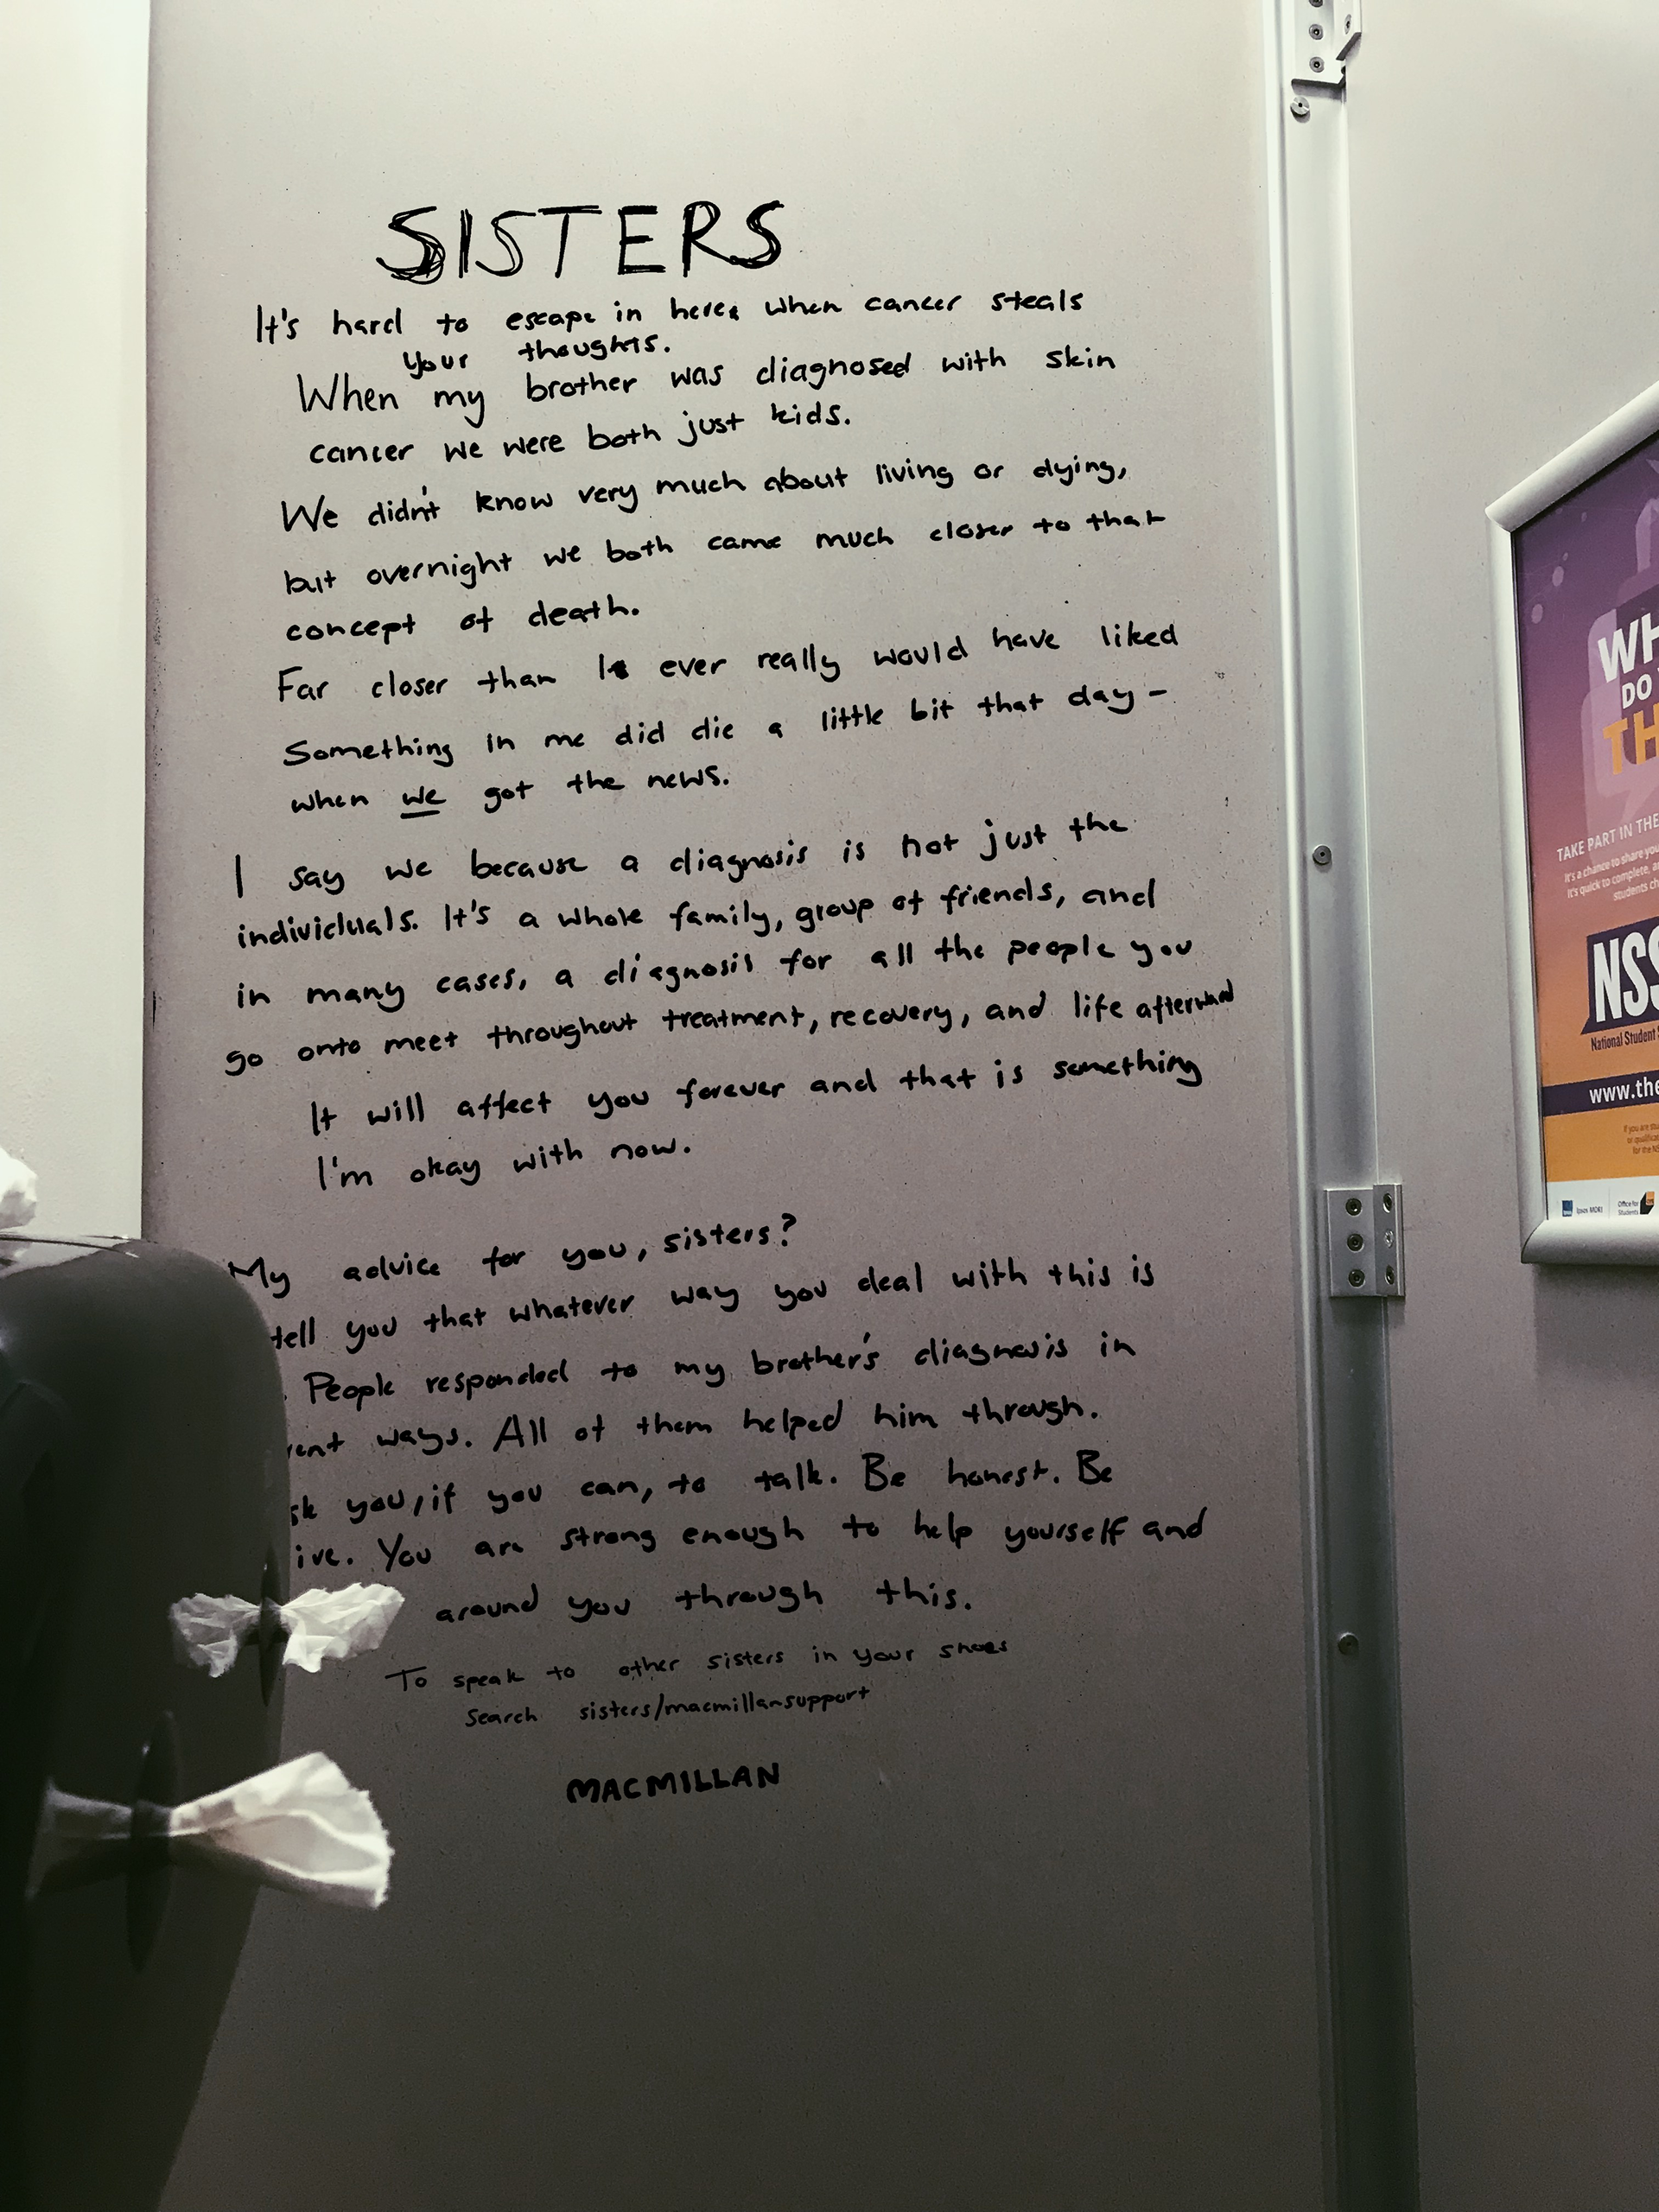 SISTERS
It's hard to escape in here, when cancer steals
your thoughts.
When my brother was diagnosed with skin
cancer we were both just kids.
We didn't know very much about living or dying,
but overnight we both came much closer to that
concept of death.
Far closer than I ever really would have liked
Something in me did die a little bit that day -
when we got the news.
I say we because a diagnosis is not just the
individuals. It's a whole family, group of friends, and
in many cases, a diagnosis for all the people you
go onto meet throughout treatment, recovery, and life afterward
It will affect you forever and that is something
I'm okay with now.
My advice for you, sisters?
tell you that whatever way you deal with this is
. People responded to my brother's diagnosis in
rent ways. All of them helped him through.
sk you, if you can, to talk. Be honest. Be
ive. You are strong enough to help yourself and
around you through this.
To speak to other sisters in your shoes
Search sisters/macmillansupport
MACMILLAN
WH
DO
TH
TAKE PART IN THE
It's a chance to share you
It's quick to complete, a
students ch
NSS
National Student
www.the
If you are stu
or qualifica
for the NS
Ipsos MORI
Office for
Students